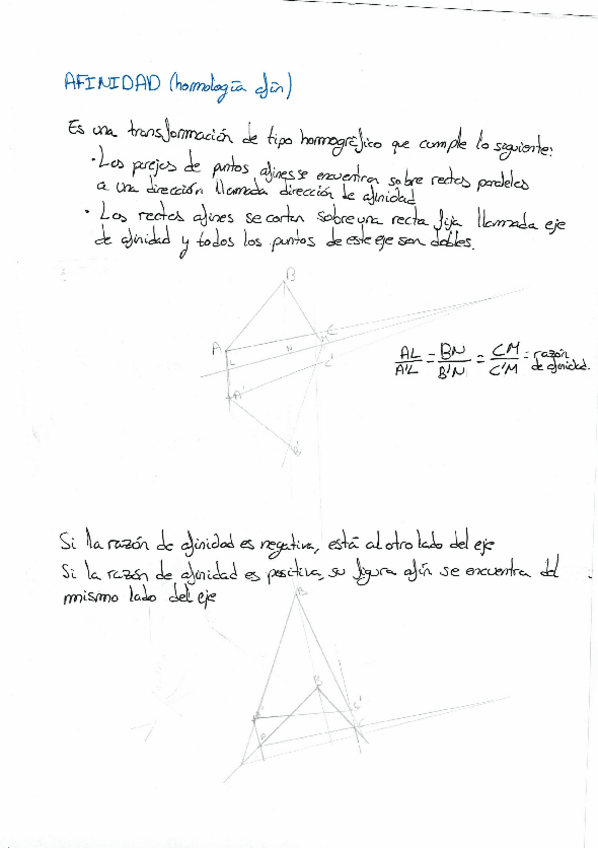 AFINIDAD (homología afín)
Es una transformación de tipo homográfico que cumple lo seguiente:
· Las parejas de puntos afines se encuentran sobre rectas paralelas
a una dirección llamada dirección de afinidad
· Las rectas afines se cortan sobre una recta fija llamada eje
de afinidad y todos los puntos de este eje son dobles.
B
A
L
N
M
C
C'
A'
B'
AL/A'L = BN/B'N = CM/C'M = razón
de afinidad.
Si la razón de afinidad es negativa, está al otro lado del eje
Si la razón de afinidad es positiva, su figura afín se encuentra del
mismo lado del eje
B'
B
C'
A'
A
C